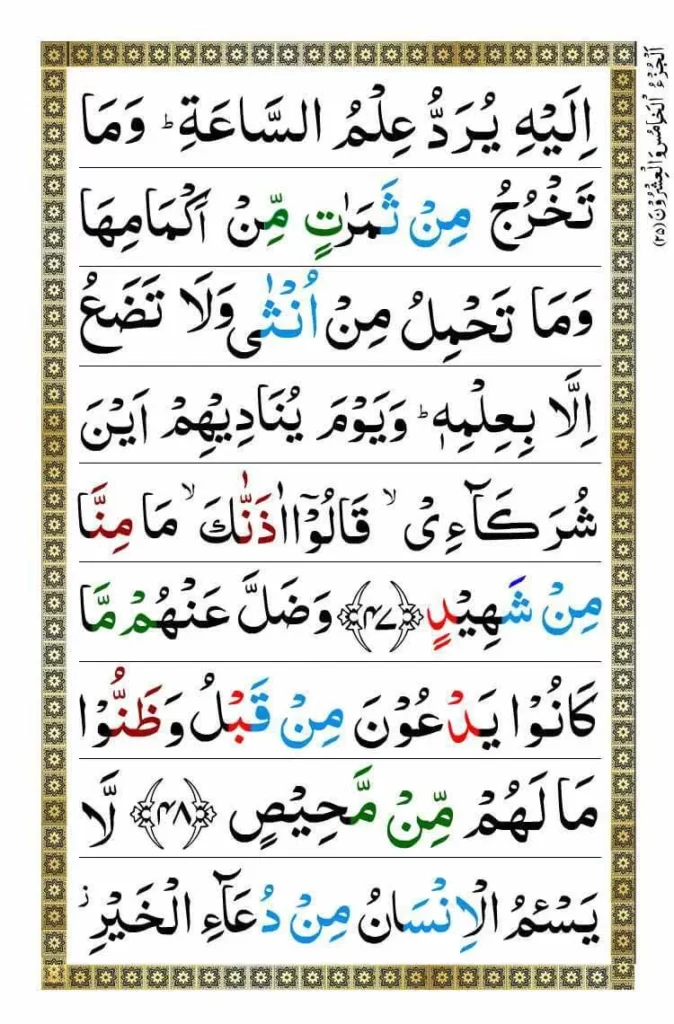 اَلْجُزْءُ الْخَامِسُ وَالْعِشْرُوْنَ (٢٥)
اِلَيْهِ يُرَدُّ عِلْمُ السَّاعَةِ ؕ وَمَا
تَخْرُجُ مِنْ ثَمَرٰتٍ مِّنْ اَكْمَامِهَا
وَمَا تَحْمِلُ مِنْ اُنْثٰى وَلَا تَضَعُ
اِلَّا بِعِلْمِهٖ ؕ وَيَوْمَ يُنَادِيْهِمْ اَيْنَ
شُرَكَآءِىْ ۙ قَالُوْۤا اٰذَنّٰكَ ۙ مَا مِنَّا
مِنْ شَهِيْدٍ ﴿۴۷﴾ وَضَلَّ عَنْهُمْ مَّا
كَانُوْا يَدْعُوْنَ مِنْ قَبْلُ وَظَنُّوْا
مَا لَهُمْ مِّنْ مَّحِيْصٍ ﴿۴۸﴾ لَّا
يَسْـَٔمُ الْاِنْسَانُ مِنْ دُعَآءِ الْخَيْرِ ز